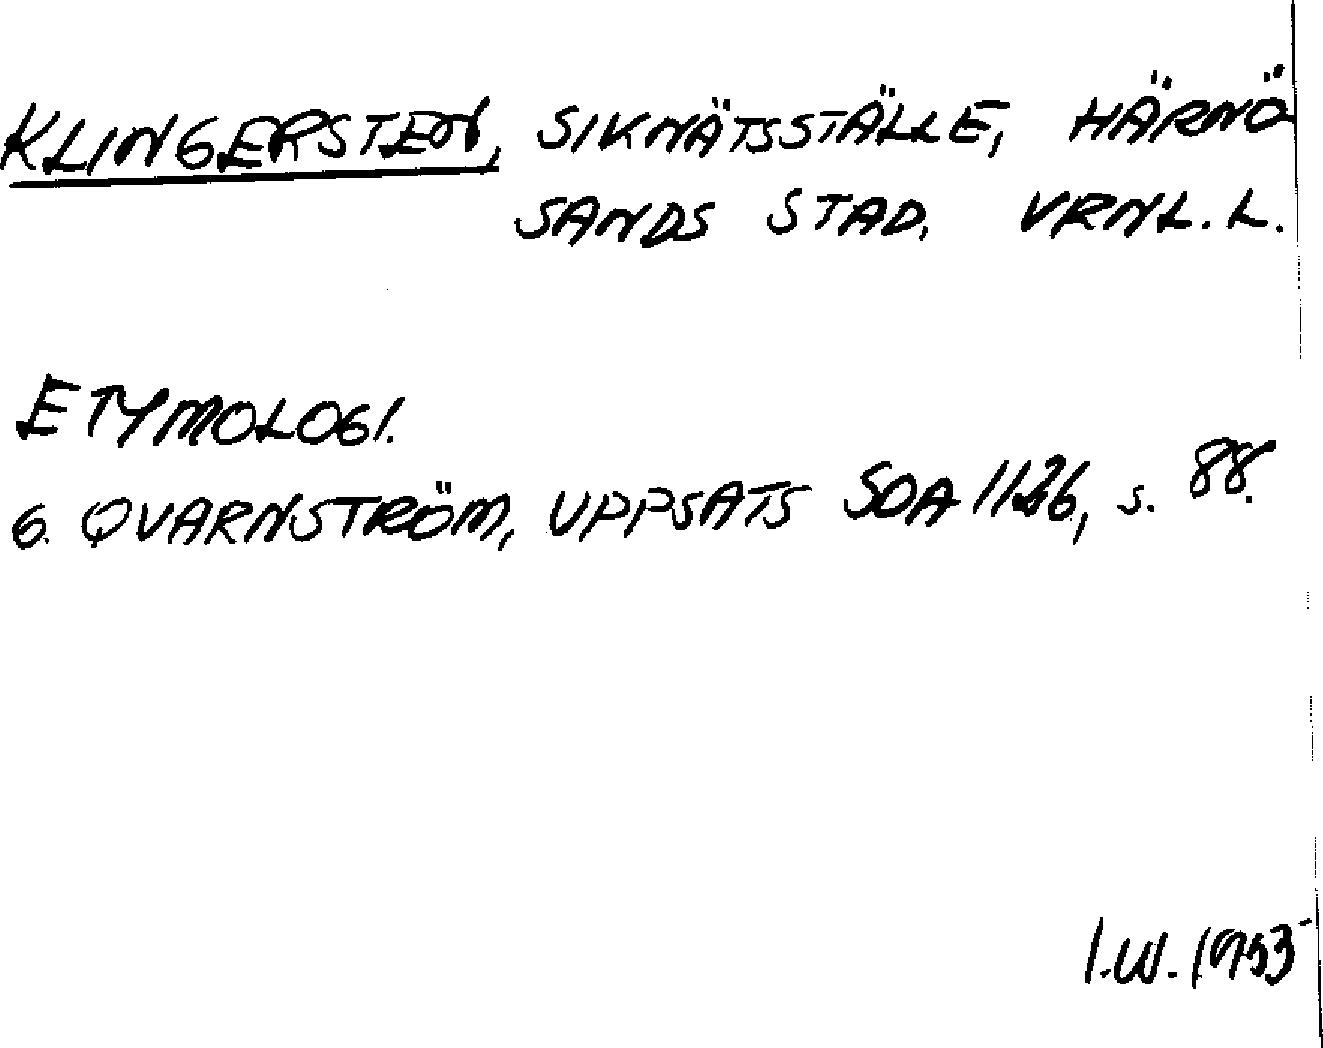 KLINGERSTEN, SIKNÄTSSTÄLLE, HÄRNÖ-
SANDS STAD, VRNL. L.
ETYMOLOGI.
G. QVARNSTRÖM, UPPSATS SOA 1126, s. 88.
I.W. 1953